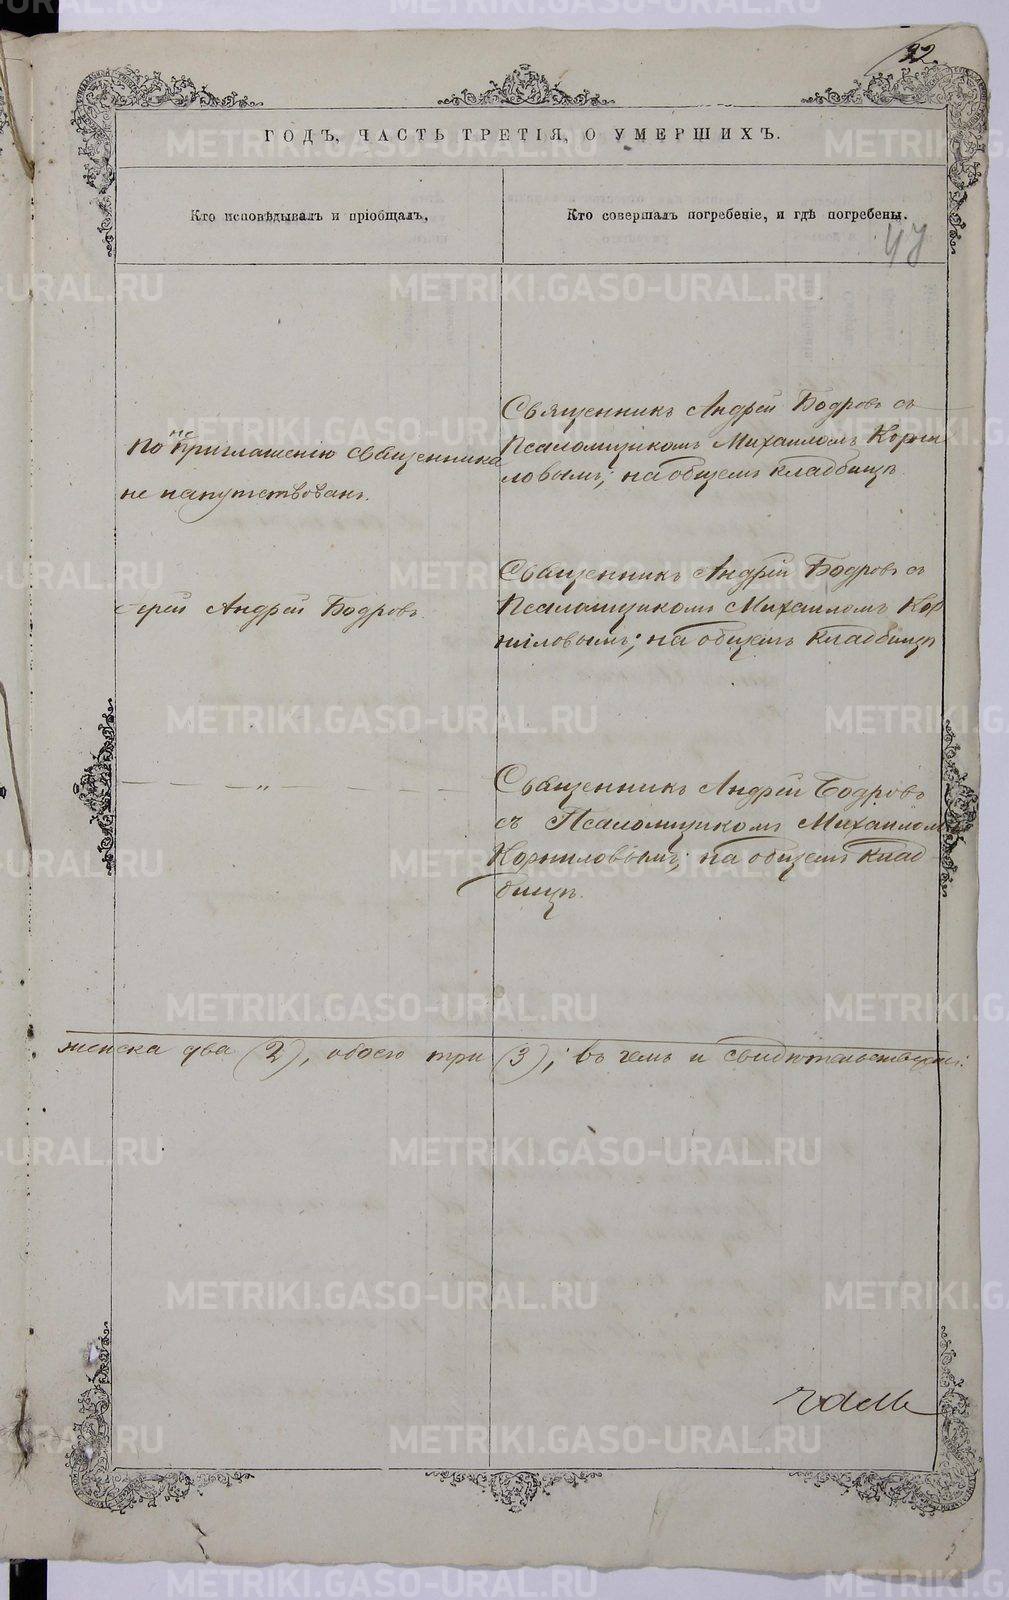 22
ГОДЪ, ЧАСТЬ ТРЕТІЯ, О УМЕРШИХЪ.
Кто исповѣдывалъ и пріобщалъ.
Кто совершалъ погребеніе, и гдѣ погребены.
47
По не приглашенію священника
не напутствованъ.
Священникъ Андрей Бодровъ съ
Псаломщикомъ Михаиломъ Корни
ловымъ; на общемъ кладбищѣ.
Іерей Андрей Бодровъ.
Священникъ Андрей Бодровъ съ
Псаломщикомъ Михаиломъ Кор
ниловымъ; на общемъ кладбищѣ
— — — „ — — — —
Священникъ Андрей Бодровъ
съ Псаломщикомъ Михаиломъ
Корниловымъ; на общемъ клад
бищѣ.
женска два (2), обоего три (3); въ чемъ и свидѣтельствуемъ:
METRIKI.GASO-URAL.RU